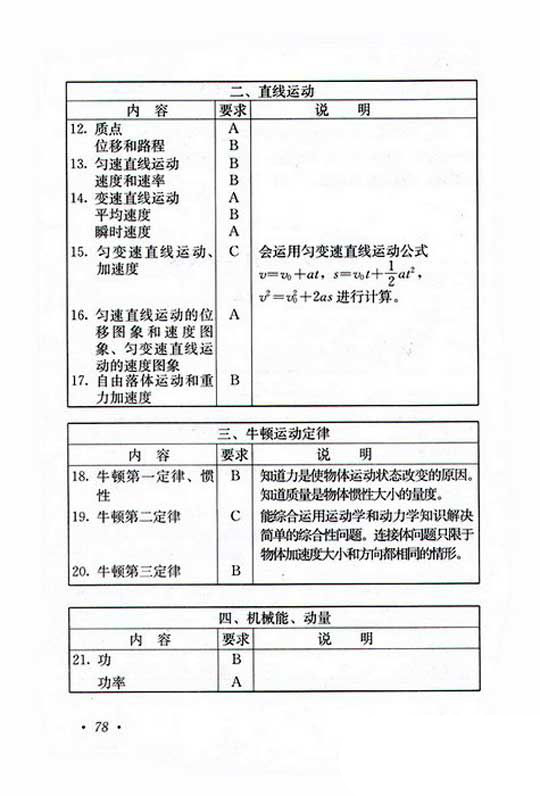 二、直线运动
内 容 要求 说 明
12. 质点 A
位移和路程 B
13. 匀速直线运动 B
速度和速率 B
14. 变速直线运动 A
平均速度 B
瞬时速度 A
15. 匀变速直线运动、 C 会运用匀变速直线运动公式
加速度 v=v₀+at, s=v₀t+1/2at²,
v²=v₀²+2as 进行计算。
16. 匀速直线运动的位 A
移图象和速度图
象、匀变速直线运
动的速度图象
17. 自由落体运动和重 B
力加速度
三、牛顿运动定律
内 容 要求 说 明
18. 牛顿第一定律、惯 B 知道力是使物体运动状态改变的原因。
性 知道质量是物体惯性大小的量度。
19. 牛顿第二定律 C 能综合运用运动学和动力学知识解决
简单的综合性问题。连接体问题只限于
物体加速度大小和方向都相同的情形。
20. 牛顿第三定律 B
四、机械能、动量
内 容 要求 说 明
21. 功 B
功率 A
· 78 ·